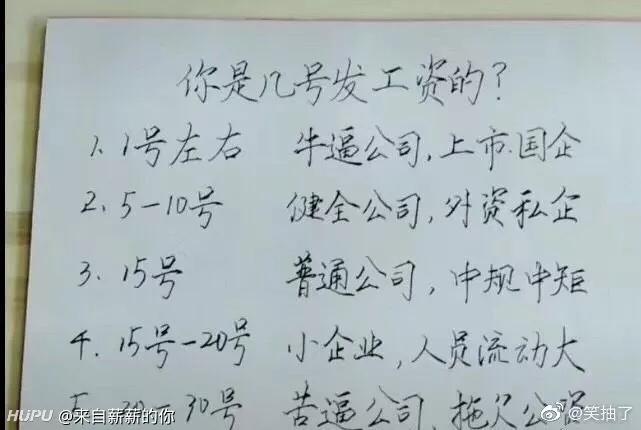 你是几号发工资的?
1、1号左右 牛逼公司,上市.国企
2、5-10号 健全公司,外资私企
3、15号 普通公司,中规中矩
4、15号-20号 小企业,人员流动大
5、20-30号 苦逼公司,拖欠公司
HUPU @来自薪薪的你
@笑抽了